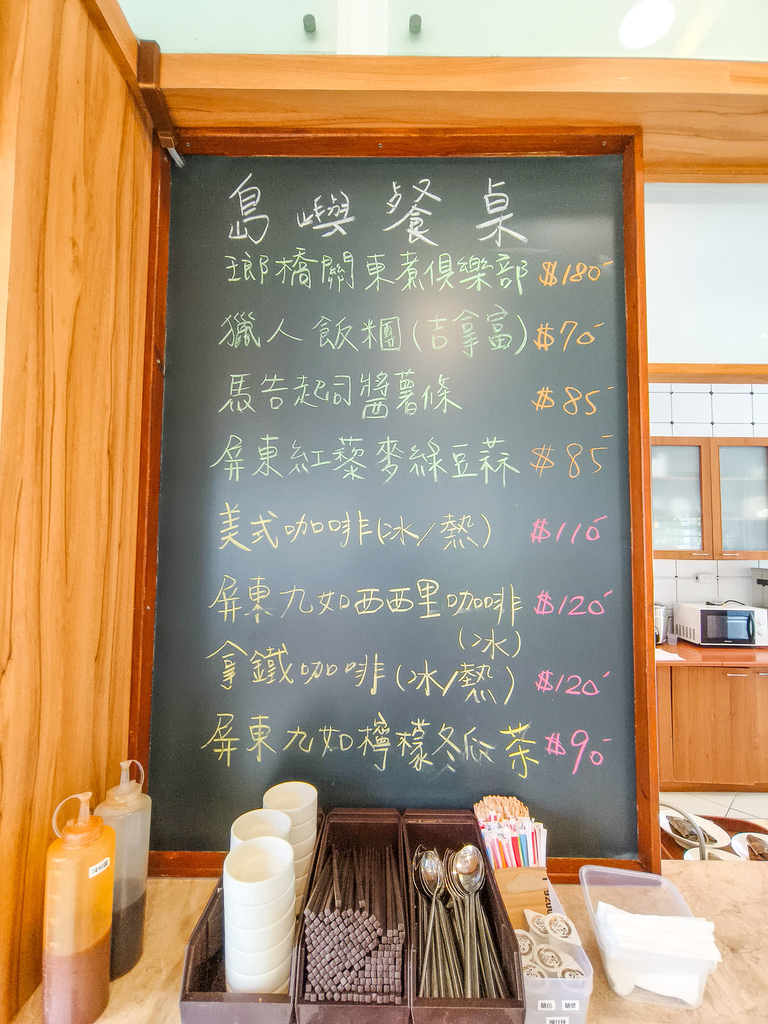 島嶼餐桌
瑯橋關東煮俱樂部 $180
獵人飯糰(吉拿富) $70
馬告起司醬薯條 $85
屏東紅藜麥綠豆蒜 $85
美式咖啡(冰/熱) $110
屏東九如西西里咖啡 $120
(冰)
拿鐵咖啡(冰/熱) $120
屏東九如檸檬冬瓜茶 $90